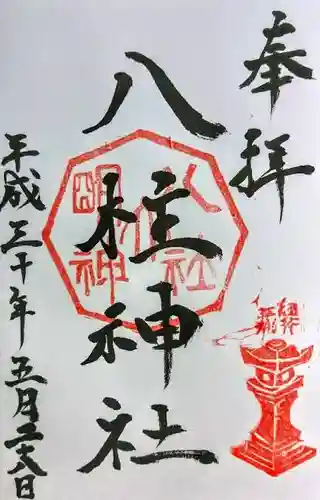 奉拝
八柱神社
平成三十年五月二六日